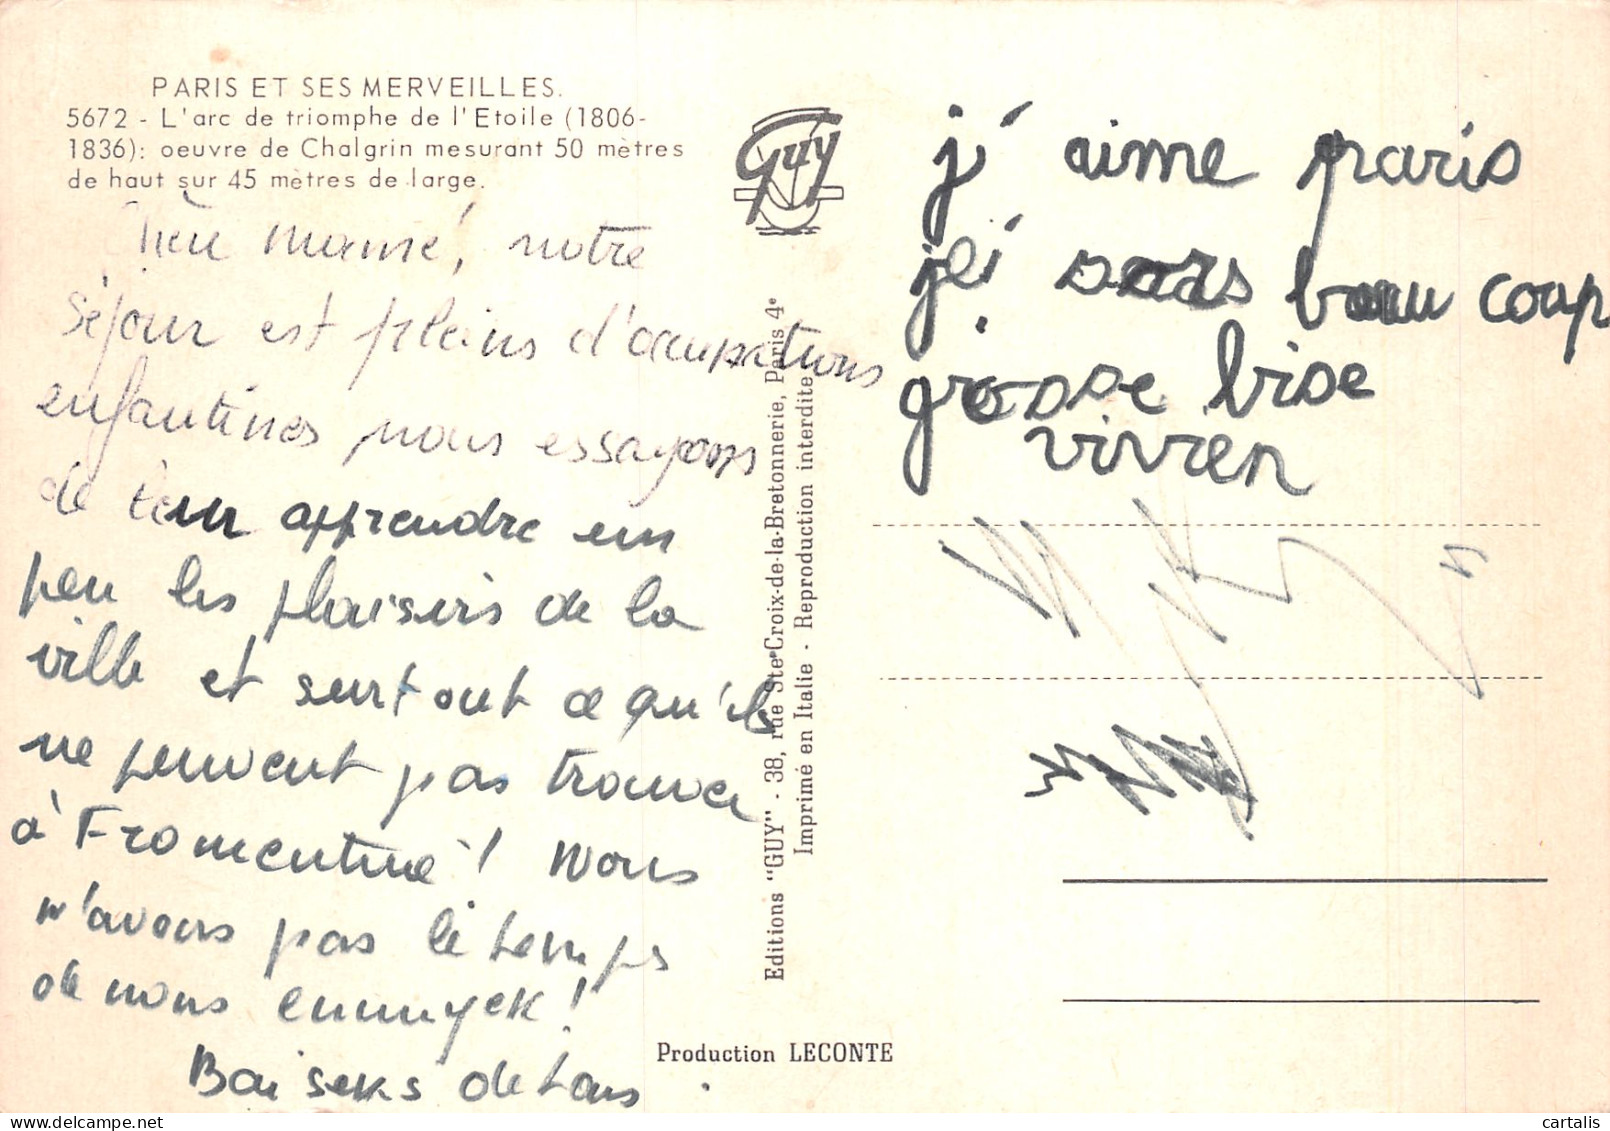 PARIS ET SES MERVEILLES.
5672 - L'arc de triomphe de l'Etoile (1806-
1836): oeuvre de Chalgrin mesurant 50 mètres
de haut sur 45 mètres de large.
notre
séjour est pleins d'occupations
enfantines nous essayons
de leur apprendre un
peu les plaisirs de la
ville et surtout ce qu'ils
ne peuvent pas trouver
à Fromentine ! Nous
n'avons pas le temps
de nous ennuyer !
Baisers de tous.
Guy
Editions "GUY" - 38, rue Ste-Croix-de-la-Bretonnerie, Paris 4e
Imprimé en Italie - Reproduction interdite
Production LECONTE
j' aime paris
beau coup
grosse bise
vivien
cartalis